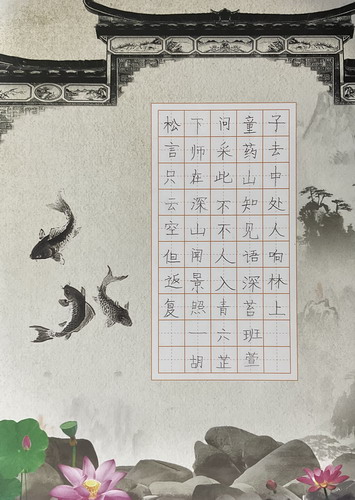 松下问童子
言师采药去
只在此山中
云深不知处
空山不见人
但闻人语响
返景入深林
复照青苔上
一六班
胡芷萱